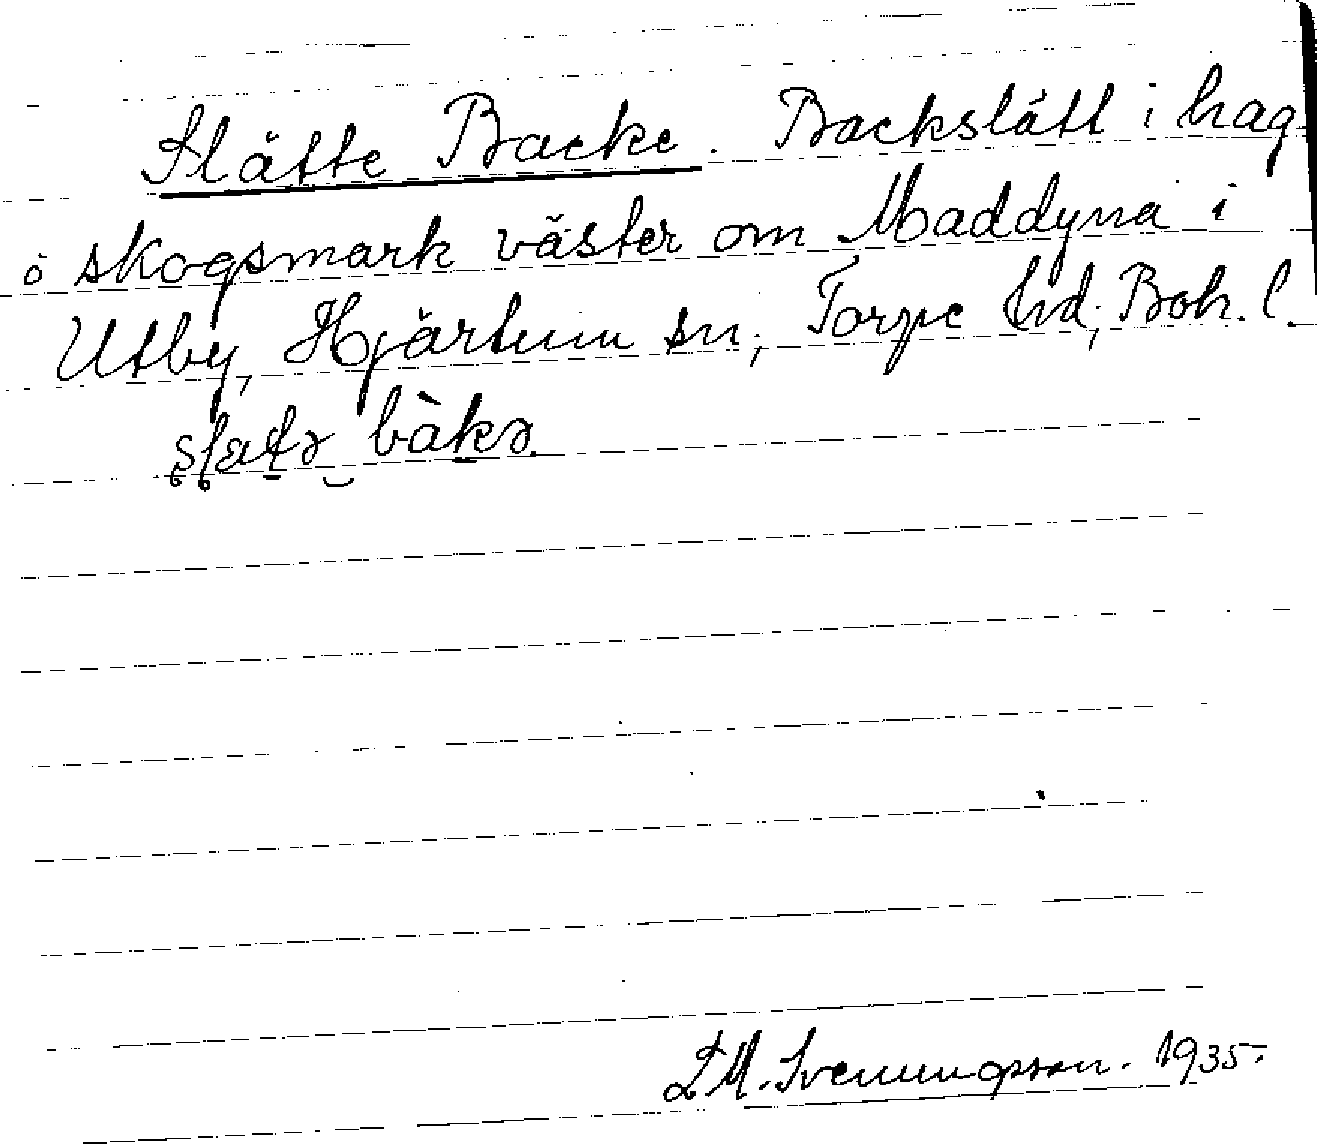 Slätte Backe. Backslätt i hag
o skogsmark väster om Maddyna i
Utby, Hjärtum sn, Torpe hd, Boh. l.
bàkə
L M. Svenungsson. 1935.